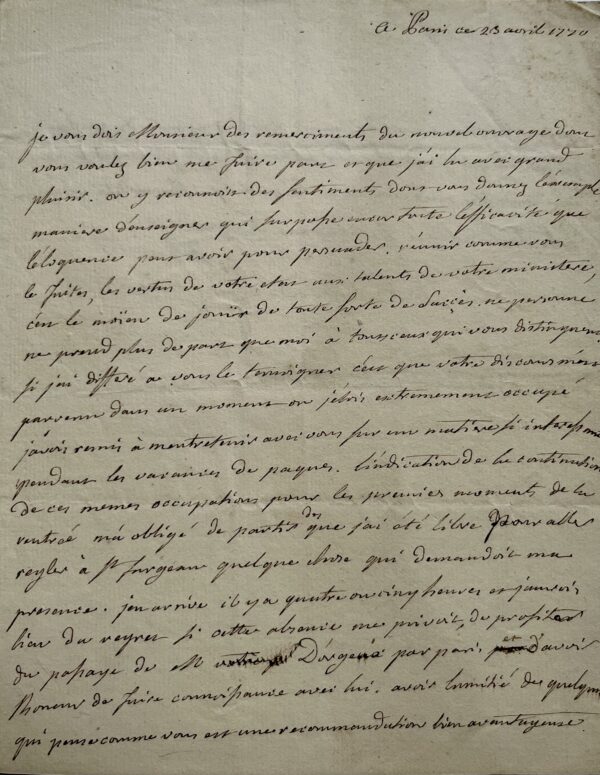 a Paris ce 23 avril 1770
je vous dois Monsieur des remerciments du nouvel ouvrage dont
vous voulez bien me faire part et que j'ai lu avec grand
plaisir. on y reconnoit des sentiments dont vous donnez l'exemple
maniere d'enseigner qui surpasse encor toute l'efficacité que
l'éloquence peut avoir pour persuader. réunir comme vous
le faites, les vertus de votre etat aux talents de votre ministere,
c'est le moïen de joüir de toute sorte de succès. ne personne
ne prend plus de part que moi à tous ceux qui vous distinguent
si j'ai differé a vous le temoigner c'est que votre discours m'est
parvenu dans un moment ou j'étois extremement occupé
j'avois remis à m'entretenir avec vous sur un matiere si interessante
pendant les vacances de paques. l'indication de la continuation
de ces memes occupations pour les premiers moments de la
rentrée m'a obligé de partir dès que j'ai été libre pour aller
regler à St Surgeau quelque chose qui demandoit ma
presence. j'en arrive il y a quatre ou cinq heures et j'aurois
bien du regret si cette absence me privoit, de profiter
du passage de M par paris et d'avoir
l'honeur de faire connoissance avec lui. avoir l'amitié de quelqu'un
qui pense comme vous est une recommandation bien avantageuse.